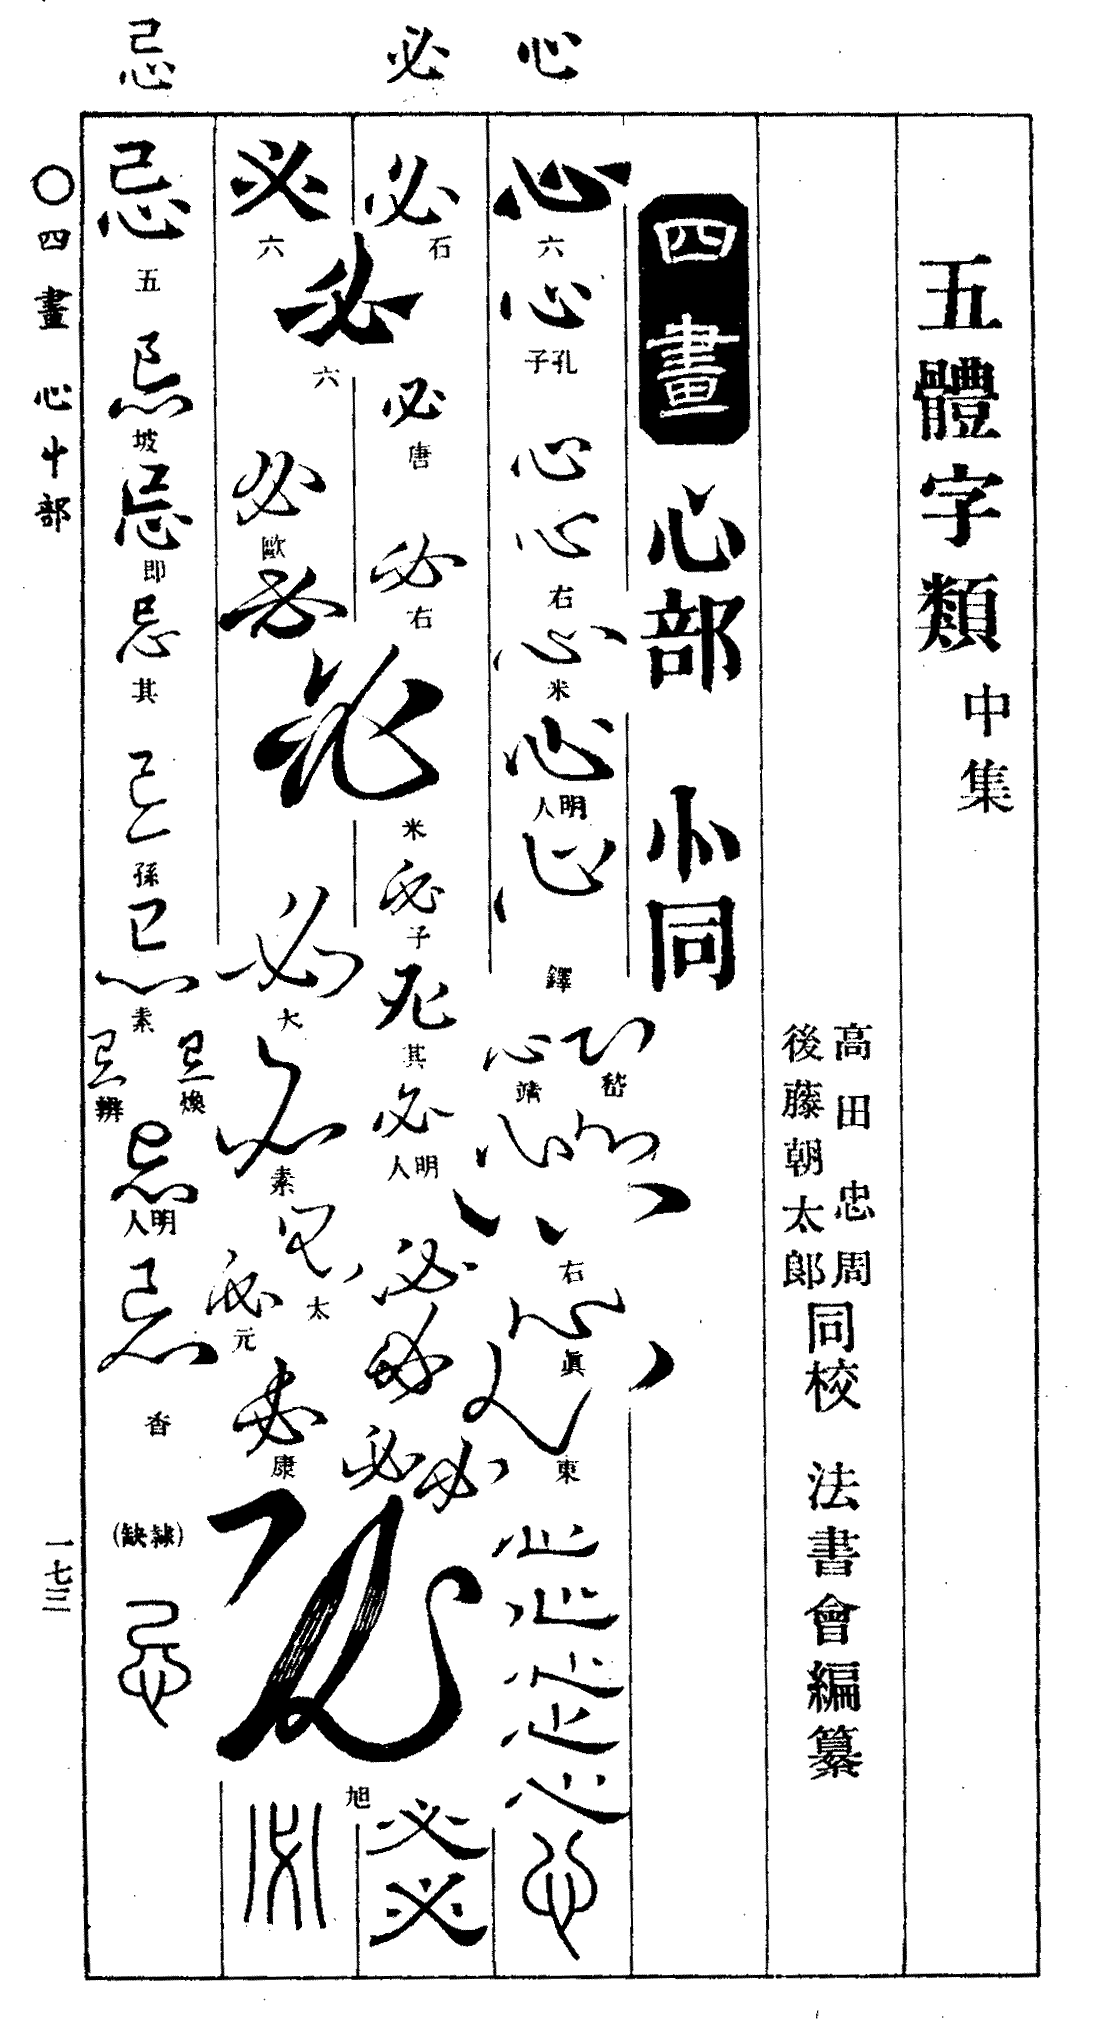 五體字類 中集
高田忠周
後藤朝太郎
同校 法書會編纂
四畫 心部 㣺同
心
心 六
心 孔子
心
心 右
心 米
心 明人
心 鐸
心 嵇
心 靖
心
心
心 右
心 眞
心 東
心
心
心
心
心
心
必
必 石
必 六
必 唐
必 右
必 米
必 子
必 其
必 明人
必
必
必
必
必 旭
必
必
必 六
必 歐
必
必 大
必 素
必 太
必 元
必 康
必
忌
忌 五
忌 坡
忌 即
忌 其
忌 孫
忌 素
忌 煥
忌 辨
忌 明人
忌 香
(隸缺)
忌
〇四畫 心忄部
一七三